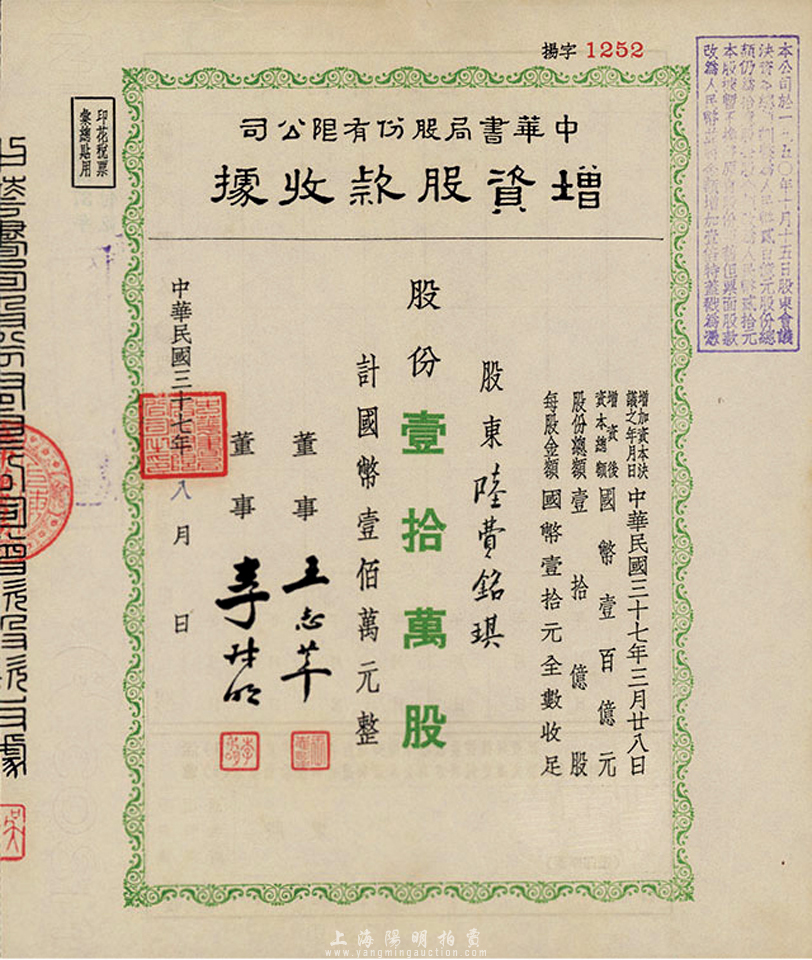 揚字 1252
中華書局股份有限公司
增資股款收據
印花稅票
彙總貼用
本公司於一九五〇年十月十五日股東會議
改為人民幣
增加資本決
議之年月日
中華民國三十七年三月廿八日
增資後
資本總額
國幣壹百億元
股份總額壹拾億股
每股金額國幣壹拾元全數收足
股東陸費銘琪
股份壹拾萬股
計國幣壹佰萬元整
董事王志莘
董事李
中華民國三十七年八月 日
上海陽明拍賣
www.yangmingauction.com